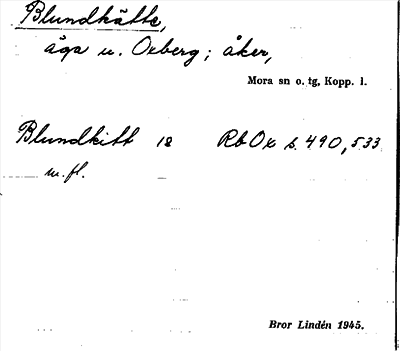 Blundkätte,
äga u. Oxberg; åker,
Mora sn o. tg, Kopp. l.
Blundkitt 18 RbOx s. 490, 533
m. fl.
Bror Lindén 1945.